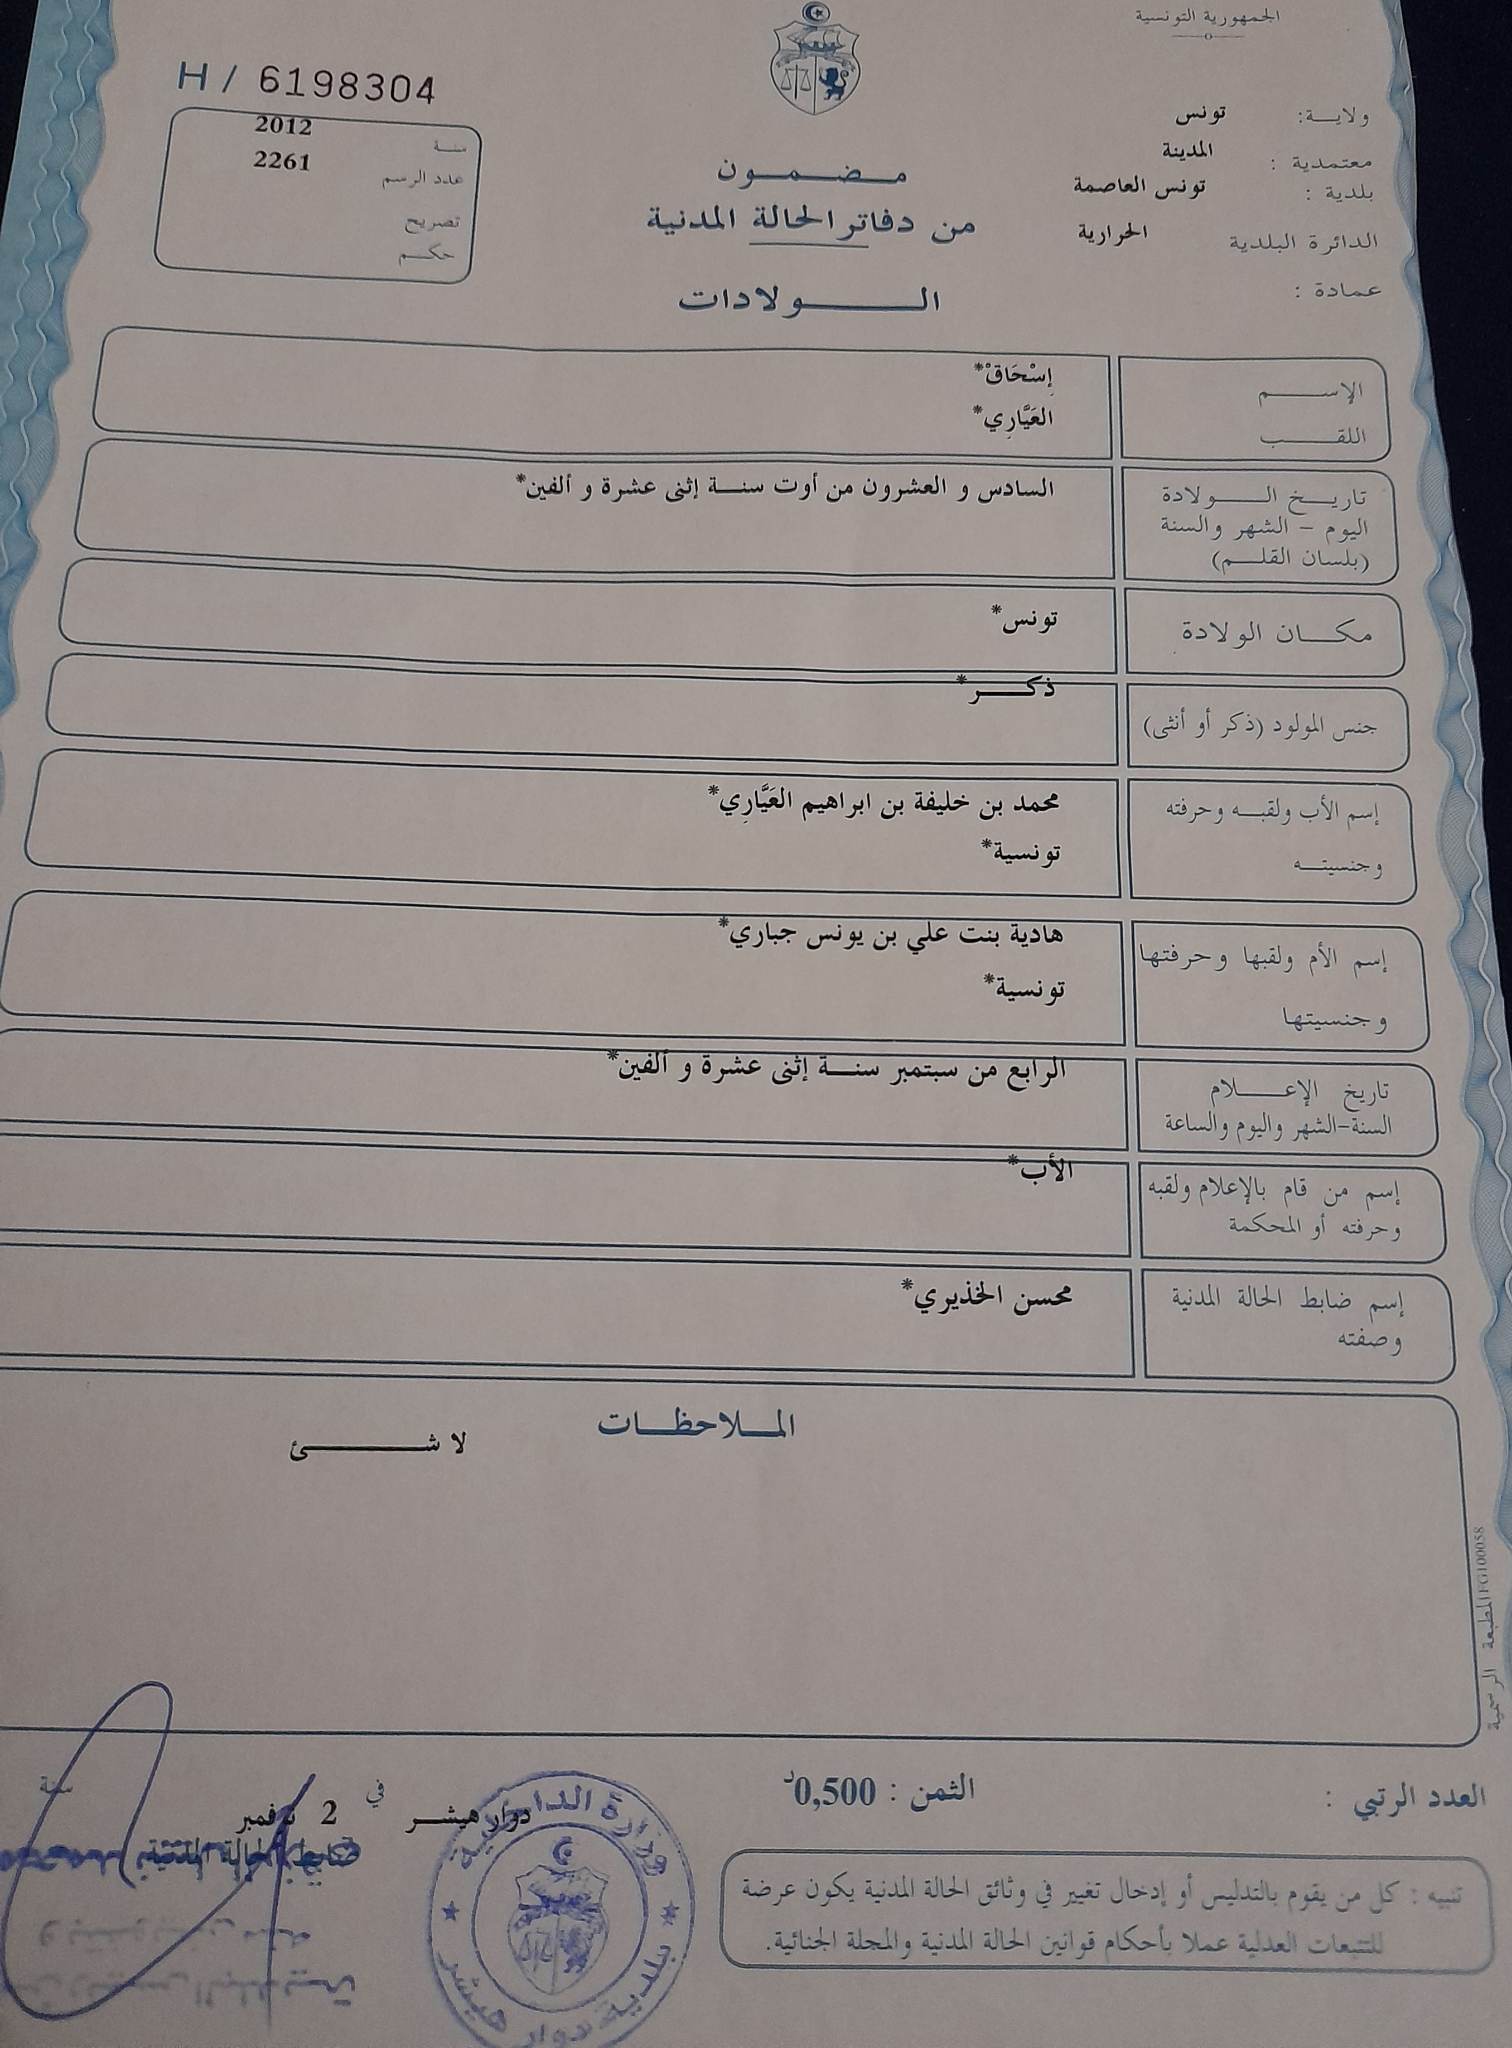 الجمهورية التونسية
H / 6198304
ولايــة: تونس
معتمدية : المدينة
بلدية : تونس العاصمة
الدائرة البلدية الحرارية
عمادة :
سنـة 2012
عدد الرسم 2261
تصريح
حكــم
مـضـمـون
من دفاتر الحالة المدنية
الــولادات
الإســـم إِسْحَاقْ*
اللقــب العَيَّارِي*
تاريــخ الــولادة السادس و العشرون من أوت سنــة إثنى عشرة و ألفين*
اليوم - الشهر والسنة
(بلسان القلــم)
مكــان الولادة تونس*
جنس المولود (ذكر أو أنثى) ذكــر*
إسم الأب ولقبــه وحرفته محمد بن خليفة بن ابراهيم العَيَّارِي*
وجنسيتــه تونسية*
إسم الأم ولقبها وحرفتها هادية بنت علي بن يونس جباري*
وجنسيتها تونسية*
تاريخ الإعــلام الرابع من سبتمبر سنــة إثنى عشرة و ألفين*
السنة-الشهر واليوم والساعة
إسم من قام بالإعلام ولقبه الأب*
وحرفته أو المحكمة
إسم ضابط الحالة المدنية محسن الخذيري*
وصفته
الملاحظــات
لا شــــئ
المطبعة الرسمية
العدد الرتبي :
الثمن : 0,500د
دوار هيشــر في 2 نوفمبر سنة
ضابط الحالة المدنية
وزارة الداخلية
بلدية دوار هيشر
تنبيه : كل من يقوم بالتدليس أو إدخال تغيير في وثائق الحالة المدنية يكون عرضة
للتتبعات العدلية عملا بأحكام قوانين الحالة المدنية والمجلة الجنائية.